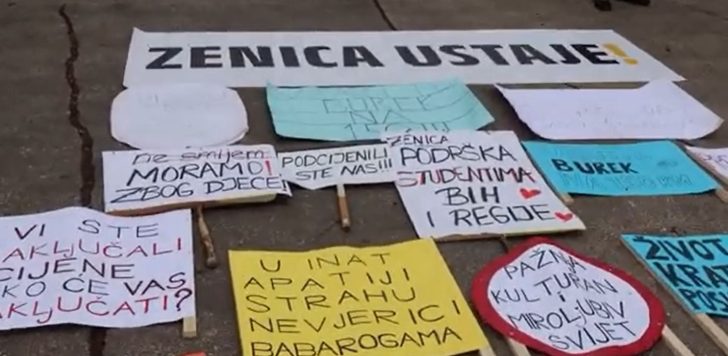 ZENICA USTAJE!
BUREK
NA
ne smijem
MORAMO!
ZBOG DJECE!
PODCIJENILI
STE NAS!!!
ZENICA
PODRŠKA
STUDENTIMA
BIH
I REGIJE
BUREK
VI STE
CIJENE
KO ĆE VAS
U INAT
APATIJI
STRAHU
NEVJERICI
BABAROGAMA
PAŽNJA
KULTURAN
i
MIROLJUBIV
SVIJET
ŽIVOT